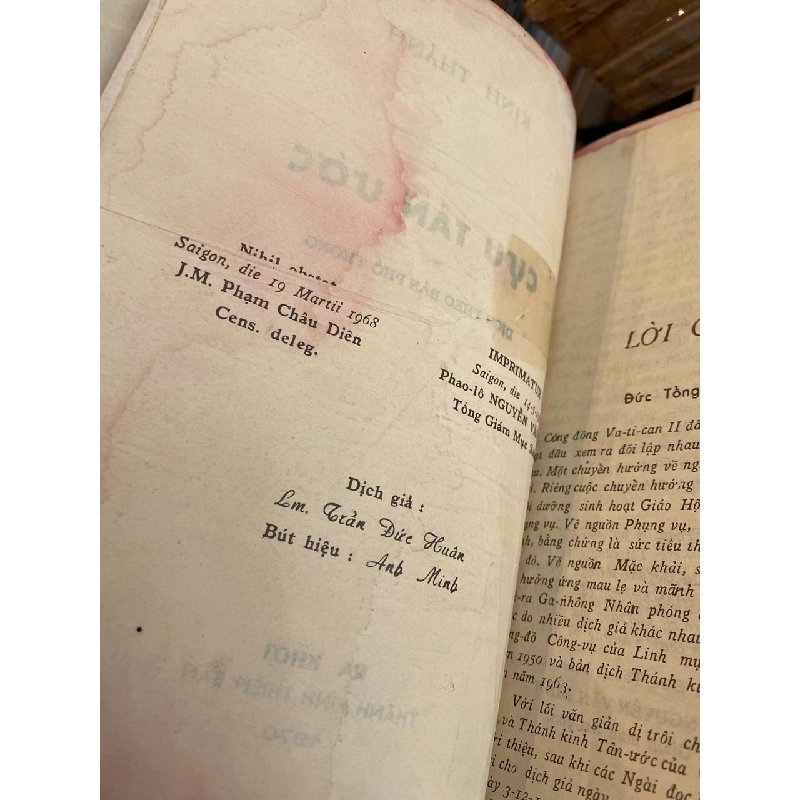 Nihil obstat
Saigon, die 19 Martii 1968
J.M. Phạm Châu Diên
Cens. deleg.
IMPRIMATUR
Saigon, die 14-5-
Phao-lô NGUYỄN VĂ
Tổng Giám Mục
Dịch giả :
Lm. Trần Đức Huân
Bút hiệu : Anh Minh
KINH THÁNH
CỰU TÂN ƯỚC
DỊCH THEO BẢN PHỔ THÔNG
RA KHƠI
THÁNH KINH THIỆN BẢN
1970
LỜI
Đức Tổng
Công đồng Va-ti-can II đã
đầu xem ra đối lập nhau
Một chuyển hướng về ng
Riêng cuộc chuyển hướng
dưỡng sinh hoạt Giáo Hộ
vụ. Về nguồn Phụng vụ,
bằng chứng là sức tiêu th
đó. Về nguồn Mặc khải, s
hưởng ứng mau lẹ và mãnh
ra Ga-nhông Nhân phóng
do nhiều dịch giả khác nhau
đô Công-vụ của Linh mụ
1950 và bản dịch Thánh ki
năm 1963.
Với lối văn giản dị trôi ch
và Thánh kinh Tân-ước của
thiện, sau khi các Ngài đọc
cho dịch giả ngày
3-12-